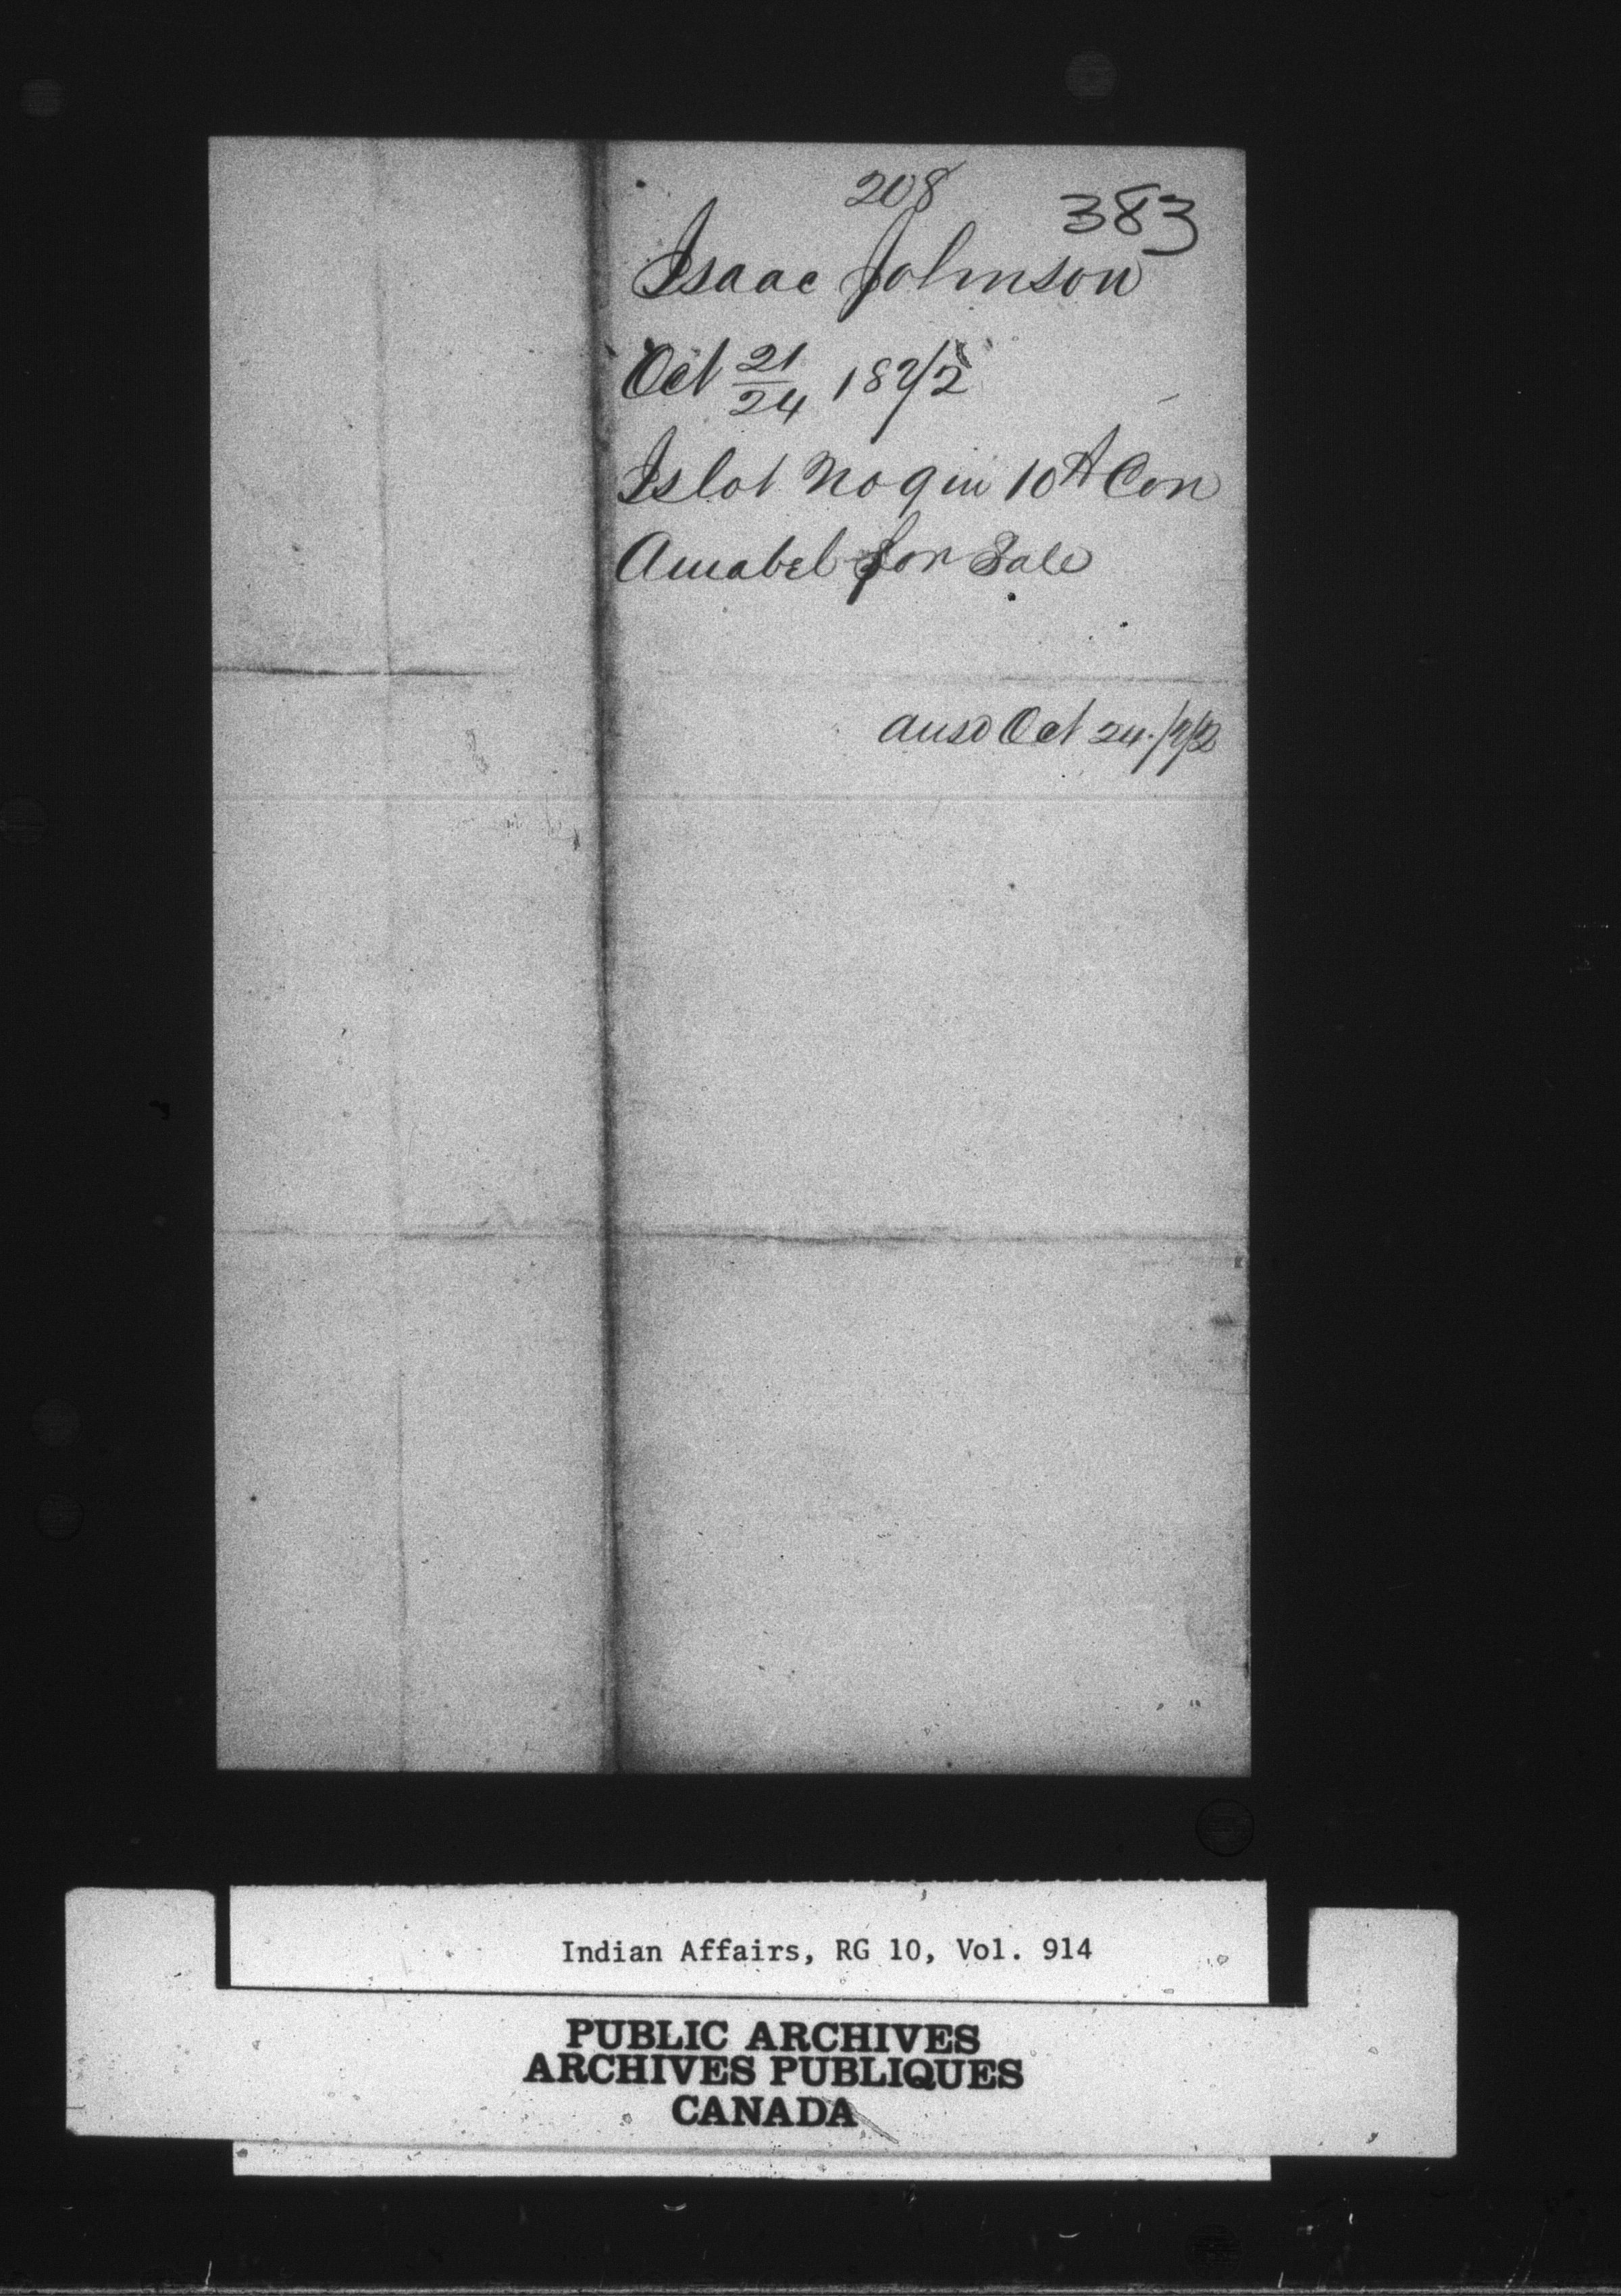 208
383
Isaac Johnson
Oct 21/24 1872
Is lot No 9 in 10th Con
Amabel for Sale
ansd Oct 24./72
Indian Affairs, RG 10, Vol. 914
PUBLIC ARCHIVES
ARCHIVES PUBLIQUES
CANADA